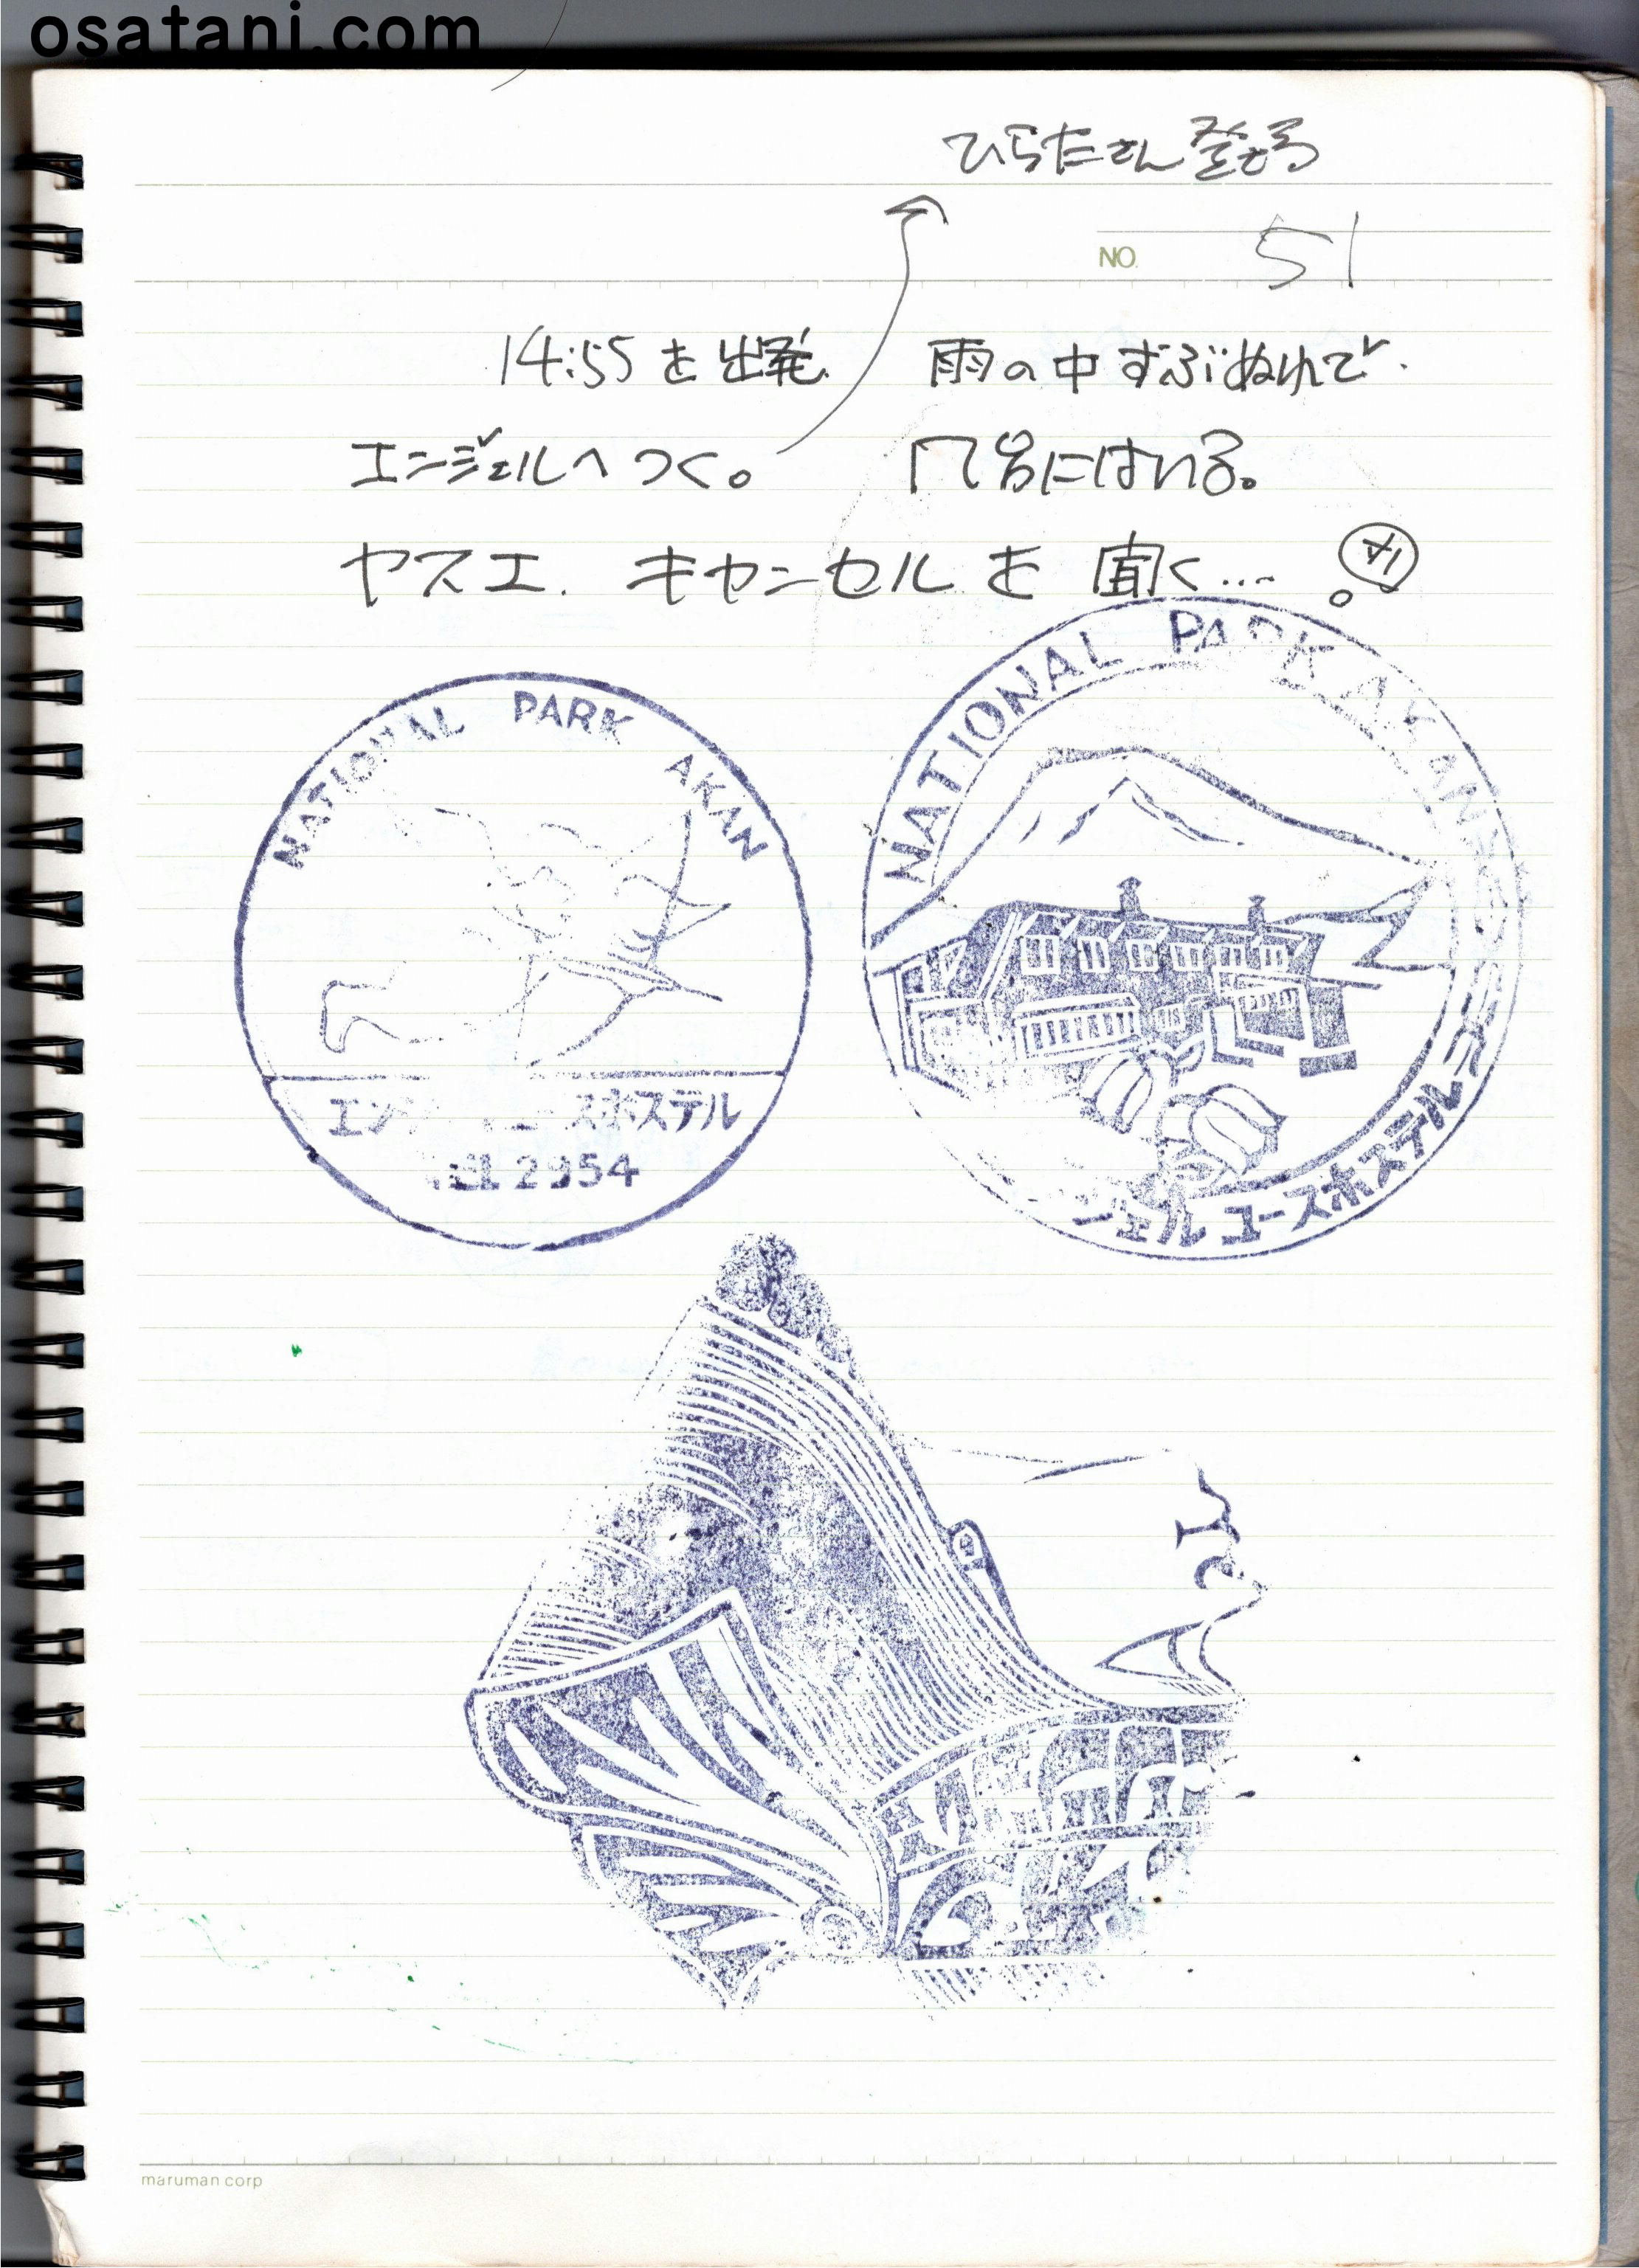 osatani.com
ひらたさん登る
NO. 51
14:55を出発 雨の中ずぶぬれで.
エンジェルへつく。 フロにはいる。
ヤスエ. キャンセルを聞く…
NATIONAL PARK AKAN
エン ースホステル
2954
NATIONAL PARK AKAN
ンジェルユースホステル
maruman corp